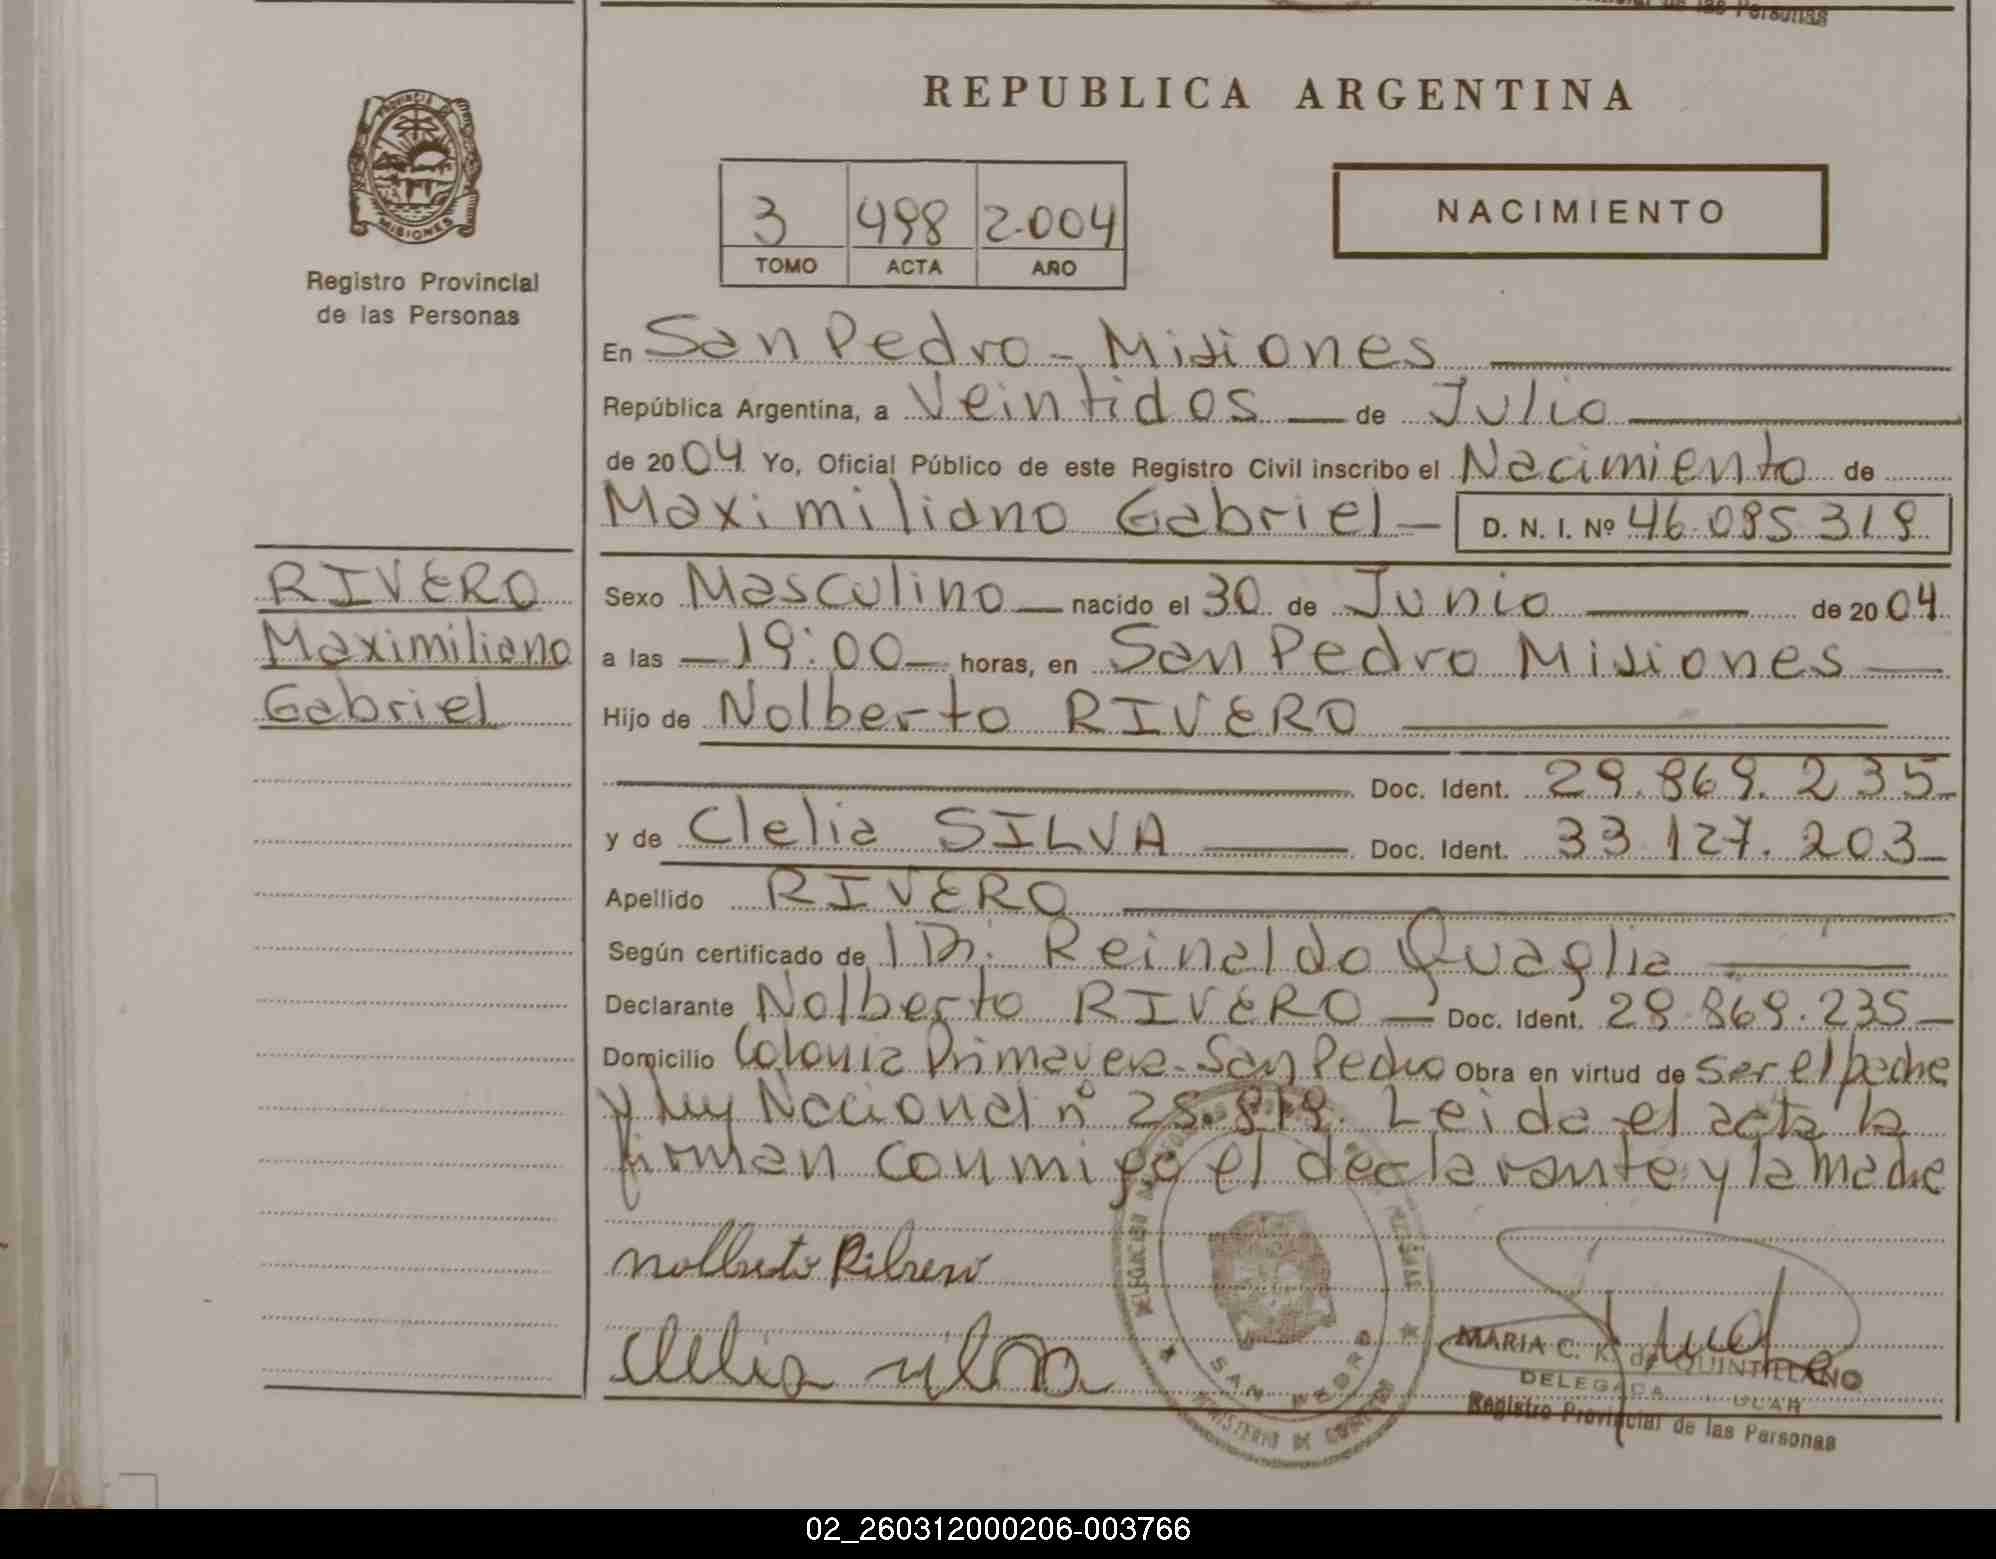 de las Personas
REPUBLICA ARGENTINA
PROVINCIA DE
MISIONES
Registro Provincial
de las Personas
3 498 2.004
TOMO ACTA AÑO
NACIMIENTO
En San Pedro - Misiones
República Argentina, a Veintidos de Julio
de 2004 Yo, Oficial Público de este Registro Civil inscribo el Nacimiento de
Maximiliano Gabriel - D. N. I. Nº 46.085.319
RIVERO
Maximiliano
Gabriel
Sexo Masculino nacido el 30 de Junio de 2004
a las - 19:00 - horas, en San Pedro Misiones
Hijo de Nolberto RIVERO
Doc. Ident. 29.869.235
y de Clelia SILVA Doc. Ident. 33.127.203
Apellido RIVERO
Según certificado de l Dr. Reinaldo Quaglia
Declarante Nolberto RIVERO - Doc. Ident. 29.869.235
Domicilio Colonia Primavera - San Pedro Obra en virtud de ser el padre
y Ley Nacional nº 25.819. Leida el acta la
firman conmigo el declarante y la madre
Nolberto Ribero
Clelia silva
SAN PEDRO
MINISTERIO DE GOBIERNO
MARIA C. K. de QUINTILLANO
DELEGADA
Registro Provincial de las Personas
02_260312000206-003766